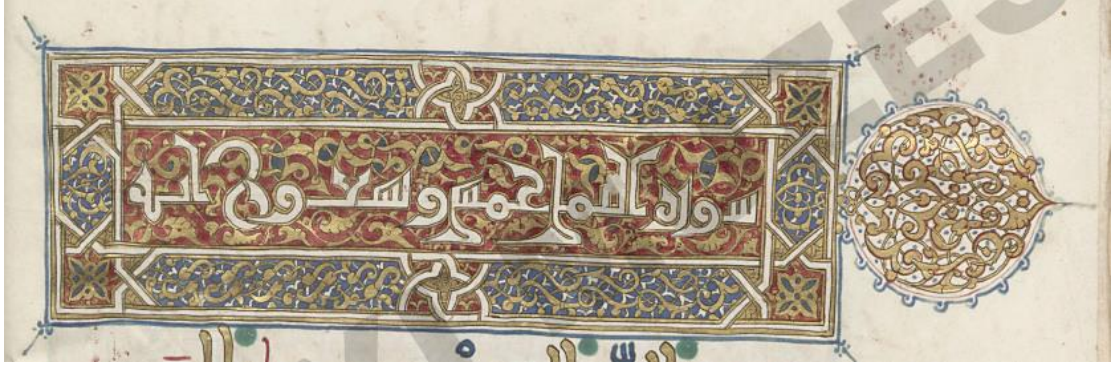 سورة النمل خمس وتسعون اية